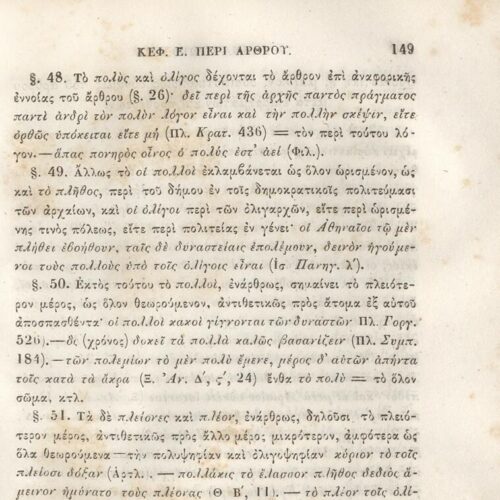 ΚΕΦ. Ε. ΠΕΡΙ ΑΡΘΡΟΥ. 149
§. 48. Τὸ πολὺς καὶ ὀλίγος δέχονται τὸ ἄρθρον ἐπὶ ἀναφορικῆς
ἐννοίας τοῦ ἄρθρου (§. 26)· δεῖ περὶ τῆς ἀρχῆς παντὸς πράγματος
παντὶ ἀνδρὶ τὸν πολὺν λόγον εἶναι καὶ τὴν πολλὴν σκέψιν, εἴτε
ὀρθῶς ὑπόκειται εἴτε μή (Πλ. Κρατ. 436) = τὸν περὶ τούτου λό-
γον.—ἅπας πονηρὸς οἶνος ὁ πολὺς ἐστ' ἀεί (Φιλ.).
§. 49. Ἄλλως τὸ οἱ πολλοὶ ἐκλαμβάνεται ὡς ὅλον ὡρισμένον, ὡς
καὶ τὸ πλῆθος, περὶ τοῦ δήμου ἐν τοῖς δημοκρατικοῖς πολιτεύμασι
τῶν ἀρχαίων, καὶ οἱ ὀλίγοι περὶ τῶν ὀλιγαρχῶν, εἴτε περὶ ὡρισμέ-
νης τινὸς πόλεως, εἴτε περὶ πολιτείας ἐν γένει· οἱ Ἀθηναῖοι τῷ μὲν
πλήθει ἐβοήθουν, ταῖς δὲ δυναστείαις ἐπολέμουν, δεινὸν ἡγούμε-
νοι τοὺς πολλοὺς ὑπὸ τοῖς ὀλίγοις εἶναι (Ἰσ Πανηγ. λ').
§. 50. Ἐκτὸς τούτου τὸ πολλοί, ἐνάρθρως, σημαίνει τὸ πλειότε-
ρον μέρος, ὡς ὅλον θεωρούμενον, ἀντιθετικῶς πρὸς ἄτομα ἐξ αὐτοῦ
ἀποσπασθέντα· οἱ πολλοὶ κακοὶ γίγνονται τῶν δυναστῶν Πλ. Γοργ.
526).—ὁ (χρόνος) δοκεῖ τὰ πολλὰ καλῶς βασανίζειν (Πλ. Συμπ.
184).—τῶν πολεμίων τὸ μὲν πολὺ ἔμενε, μέρος δ' αὐτῶν ἀπήντα
τοῖς κατὰ τὰ ἄκρα (Ξ. Ἀν. Δ', ς', 24) ἔνθα τὸ πολὺ = τὸ ὅλον
σῶμα, κτλ.
§. 51. Τὰ δὲ πλείονες καὶ πλέον, ἐνάρθρως, δηλοῦσι τὸ πλειό-
τερον μέρος, ἀντιθετικῶς πρὸς ἄλλο μέρος μικρότερον, ἀμφότερα ὡς
ὅλα θεωρούμενα—τὴν πολυψηφίαν καὶ ὀλιγοψηφίαν κύριον τὸ τοῖς
πλείοσι δόξαν (Ἀρτλ. . — πολλάκις τὸ ἔλασσον πλῆθος δεδιὸς ἄ-
μεινον ἠμύνατο τοὺς πλέονας (Θ Β', 11). — τὸ πλέον τοῖς ὀλί-